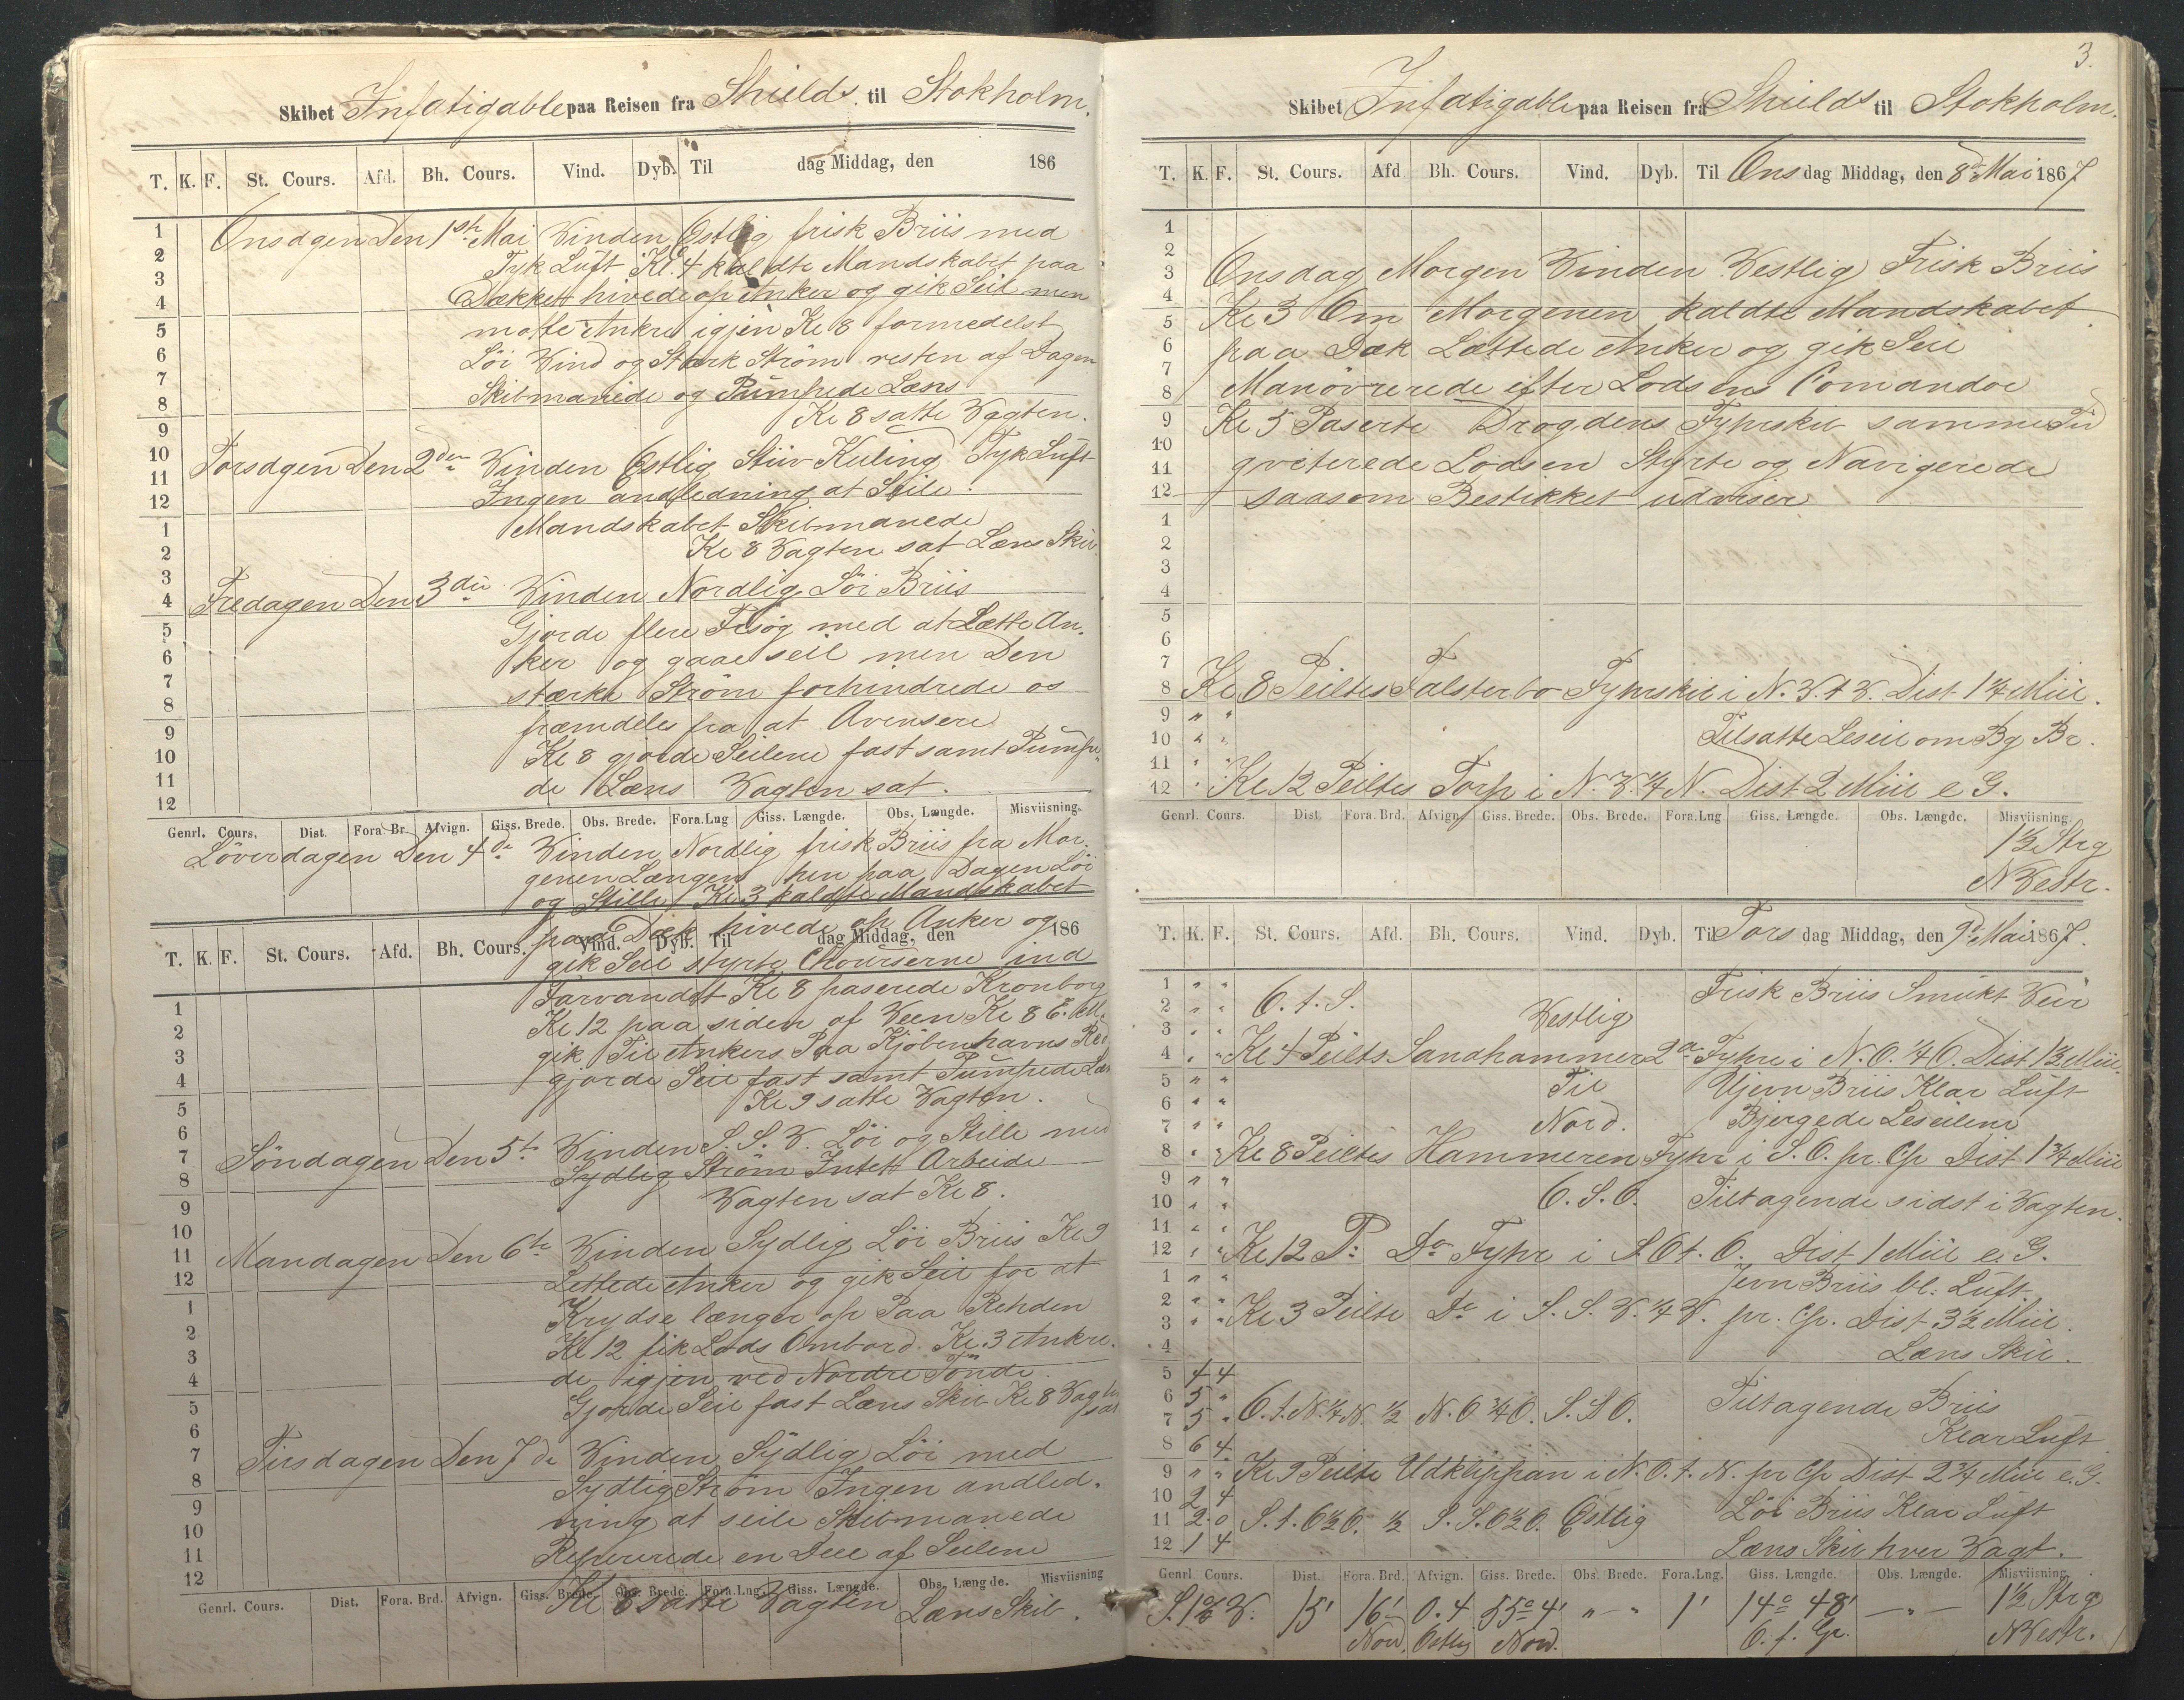 Skibet Infatigable paa Reisen fra Shields til Stokholm.
T. K. F. St. Cours. Afd. Bh. Cours. Vind. Dyb. Til dag Middag, den 186
Onsdagen Den 1ste Mai Vinden Østlig frisk Briis med
Tyk Luft Kl. 4 kaldte Mandskabet paa
Dækket hivede op Anker og gik Seil men
motte Ankre igjen Kl 8 formedelst
Löi Vind og Stærk Ström resten af Dagen
Skibmanede og Pumpede Læns
Kl 8 satte Vagten.
Torsdagen Den 2den Vinden Østlig Stiv Kuling Tyk Luft
Ingen andledning at Seile.
Mandskabet Skibmanede
Kl 8 Vagten sat Læns Skib
Fredagen Den 3die Vinden Nordlig Löi Briis
Gjorde flere Fosög med at Lætte An-
ker og gaae seil men Den
stærke Ström forhindrede os
fræmdeles fra at Avensere
Kl 8 gjorde Seilene fast samt Pumpe-
de Læns Vagten sat.
Genrl. Cours. Dist. Fora Br. Afvign. Giss. Brede. Obs. Brede. Fora.Lng Giss. Længde. Obs. Længde. Misviisning.
Löverdagen Den 4de Vinden Nordlig frisk Briis fra Mor-
genen Længere hen paa Dagen Löi
og Stille Kl 3 kaldte Mandskabet
paa Dæk hivede op Anker og
T. K. F. St. Cours. Afd. Bh. Cours. Vind. Dyb. Til dag Middag, den 186
gik Seil styrte Courserne ind
Farvandet Kl 8 paserede Kronborg
Kl 12 paa siden af Veen Kl 8 E. M.
gik Til Ankers Paa Kjöbenhavns Red
gjorde Seil fast samt Pumpede Læns
Kl 9 satte Vagten.
Söndagen Den 5te Vinden S. S. V. Löi og Stille med
Sydlig Ström Intett Arbeide
Vagten sat Kl 8.
Mandagen Den 6te Vinden Sydlig Löi Briis Kl 9
Lettede Anker og gik Seil for at
Krydse længer op Paa Rehden
Kl 12 fik Lods Ombord. Kl. 3 Ankre-
de igjen ved Nordre Tönde
Gjorde Seil fast Læns Skib Kl 8 Vagten sat
Tirsdagen Den 7de Vinden Sydlig Löi med
Sydlig Ström Ingen andled-
ning at seile Skibmanede
Reperrede en Deel af Seilene
Kl 8 satte Vagten Læns Skib.
Genrl. Cours. Dist. Fora. Brd. Afvign. Giss. Brede. Obs. Brede. Fora.Lng. Giss. Længde. Obs. Længde. Misviisning
3.
Skibet Infatigable paa Reisen fra Shields til Stokholm.
T. K. F. St. Cours. Afd Bh. Cours. Vind. Dyb. Til Onsdag Middag, den 8de Mai 1867
Onsdag Morgen Vinden Vestlig Frisk Briis
Kl 3 Om Morgenen kaldte Mandskabet
paa Dæk Lættede Anker og gik Seil
Manövrerede efter Lodsens Comandoe
Kl 5 Paserte Drogdens Fyhrskib samme Tid
qviterede Lodsen Styrte og Navigerede
saasom Bestikket udviser
Kl 8 Peiltes Falsterbo Fyhrskib i N. V. t V. Dist 1 1/4 Miil.
Tilsatte Leseil om Bg Br.
Kl 12 Peiltes Torp i N. V. 1/4 N. Dist 2 Miil e G.
Genrl. Cours. Dist. Fora. Brd. Afvign. Giss. Brede. Obs. Brede. Fora.Lng. Giss. Længde. Obs. Længde. Misviisning
1 1/2 Strg
NVestr.
T. K. F. St. Cours. Afd. Bh. Cours. Vind. Dyb. Til Torsdag Middag, den 9de Mai 1867.
Frisk Briis Smukt Veir
O. t. S. Vestlig
Kl 4 Peilts Sandhammer 2de Fyhre i N. O. 1/4 O. Dist 1 1/2 Miil.
Til Ujevn Briis Klar Luft
Nord. Bjergede Leseilene
Kl 8 Peiltes Hammeren Fyhr i S. O. pr. Cp Dist 1 3/4 Miil
O. S. O. Tiltagende sidst i Vagten.
Kl 12 P: Do Fyhr i S. O t. O. Dist 1 Miil e. G.
Jevn Briis bl: Luft.
Kl 3 Peilte Do i S. S. V. 1/4 V. pr. Cp. Dist 3 1/2 Miil.
Læns Skib.
4 4
5 " O. t. N. 1/4 N. 1/2 N. O 3/4 O. S. S O. Tiltagende Briis
5 "
6 4 Klar Luft
Kl 9 Peilte Udklippan i N. O. t. N. pr Cp Dist 2 3/4 Miil e. G.
2 4 Löi Briis Klar Luft
2 0 S. t. O 1/2 O. 1/2 S. S. O 1/2 O. Østlig
1 4 Læns Skib hver Vagt.
Genrl Cours. Dist. Fora. Brd. Afvign. Giss. Brede. Obs. Brede. Fora.Lng. Giss. Længde. Obs. Længde. Misviisning
15' 16' 0.4 55° 4' " - " 1' 14° 48' - " - 1 1/2 Strg
Nord. Østlig Nord. O. f. Gr. NVestr.